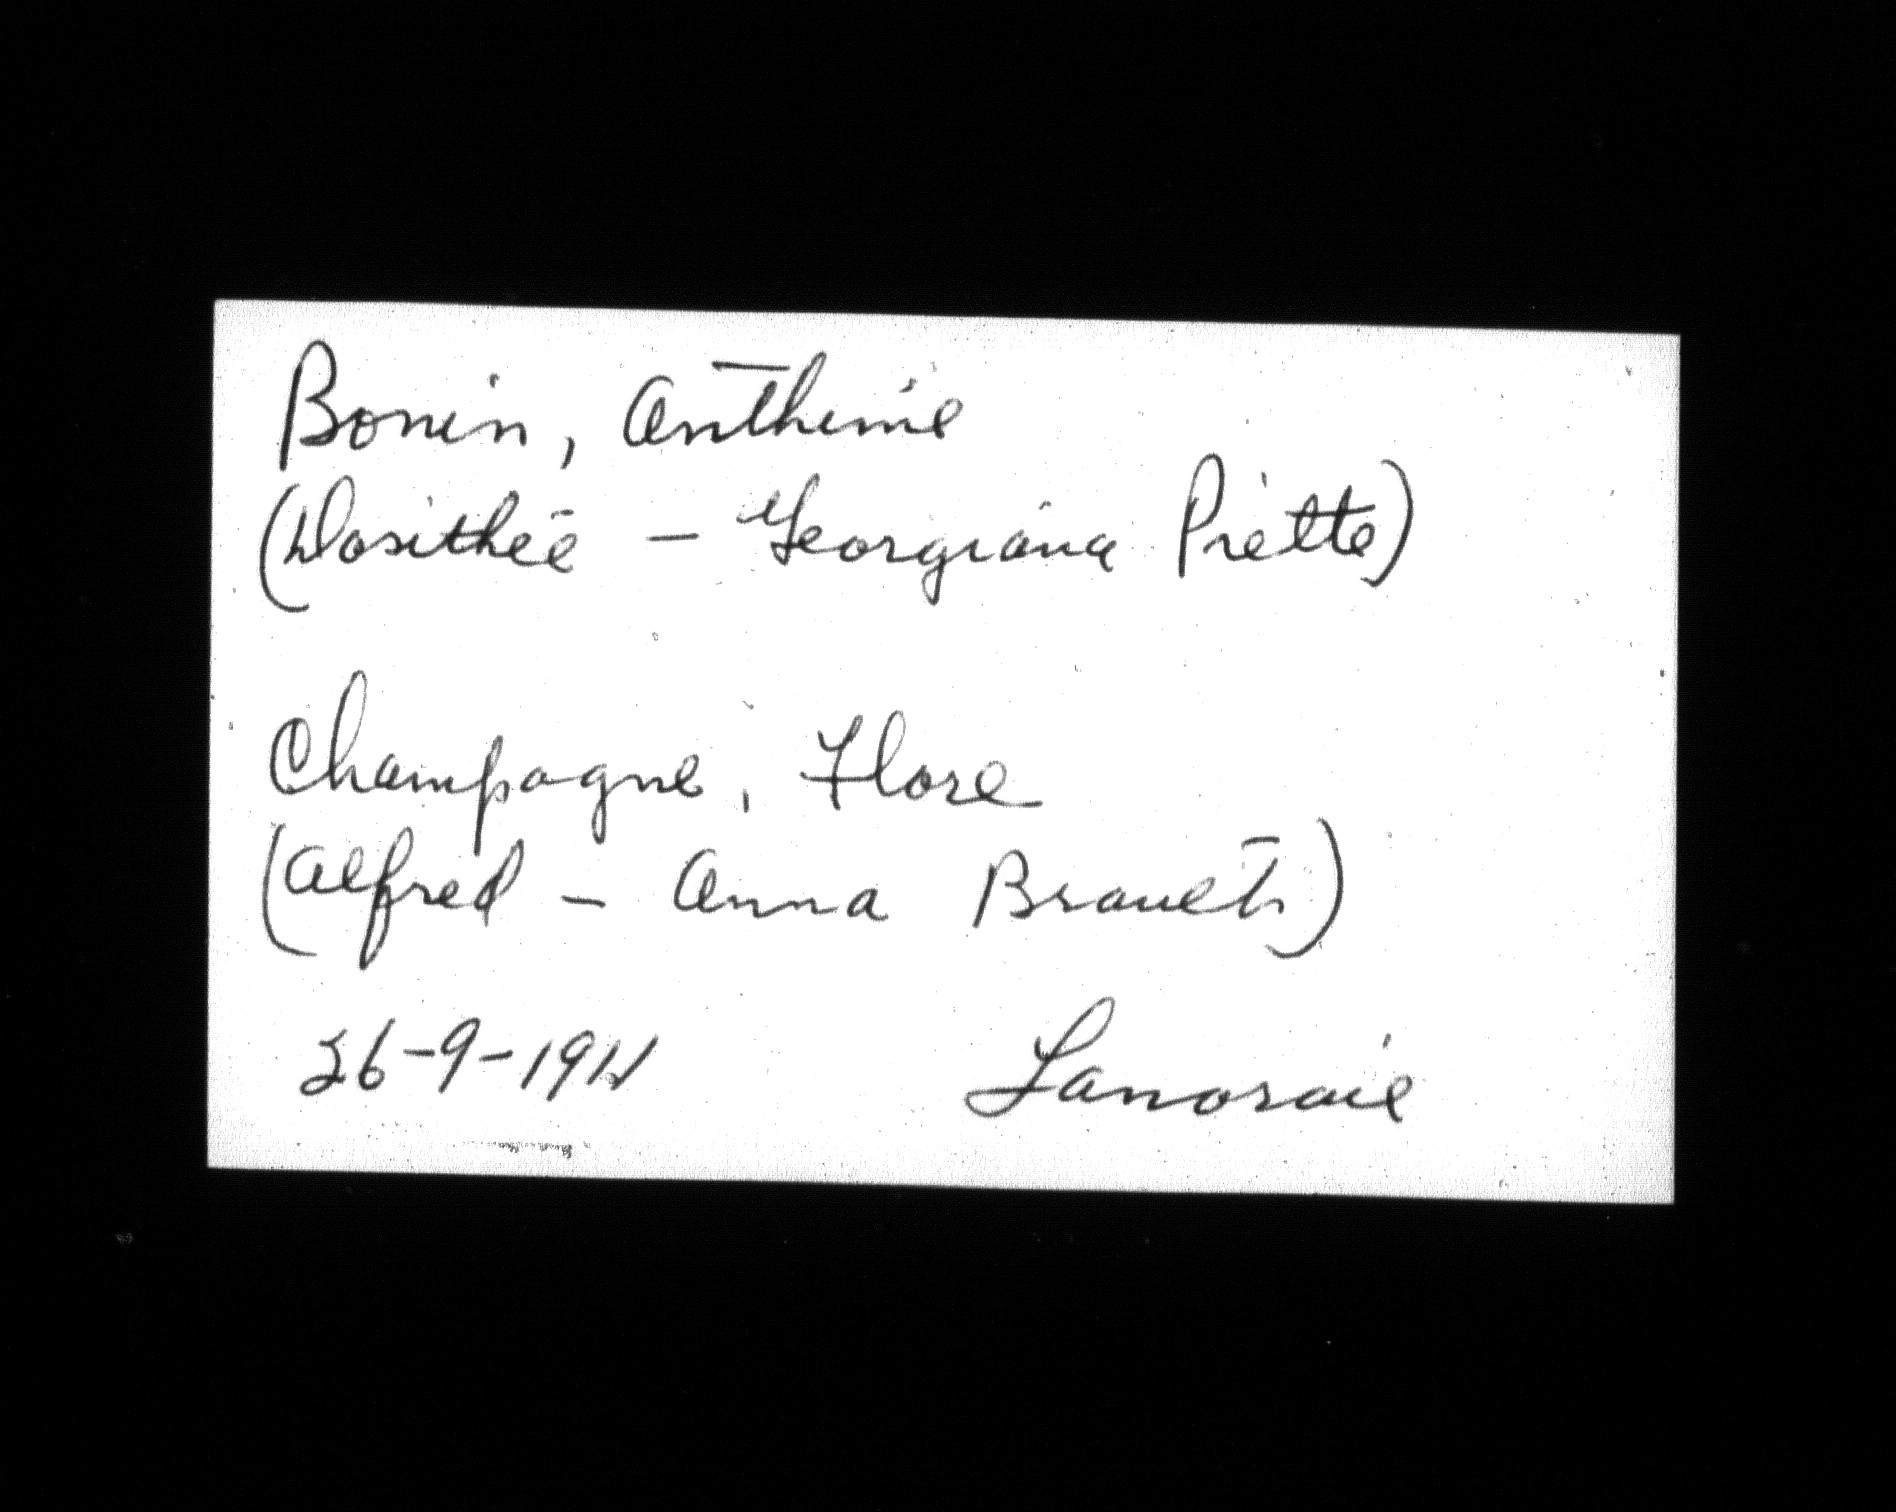 Bonin, Anthime
(Dosithée - Georgiana Piette)
Champagne, Flore
(Alfred - Anna Brault)
26-9-1911
Lanoraie